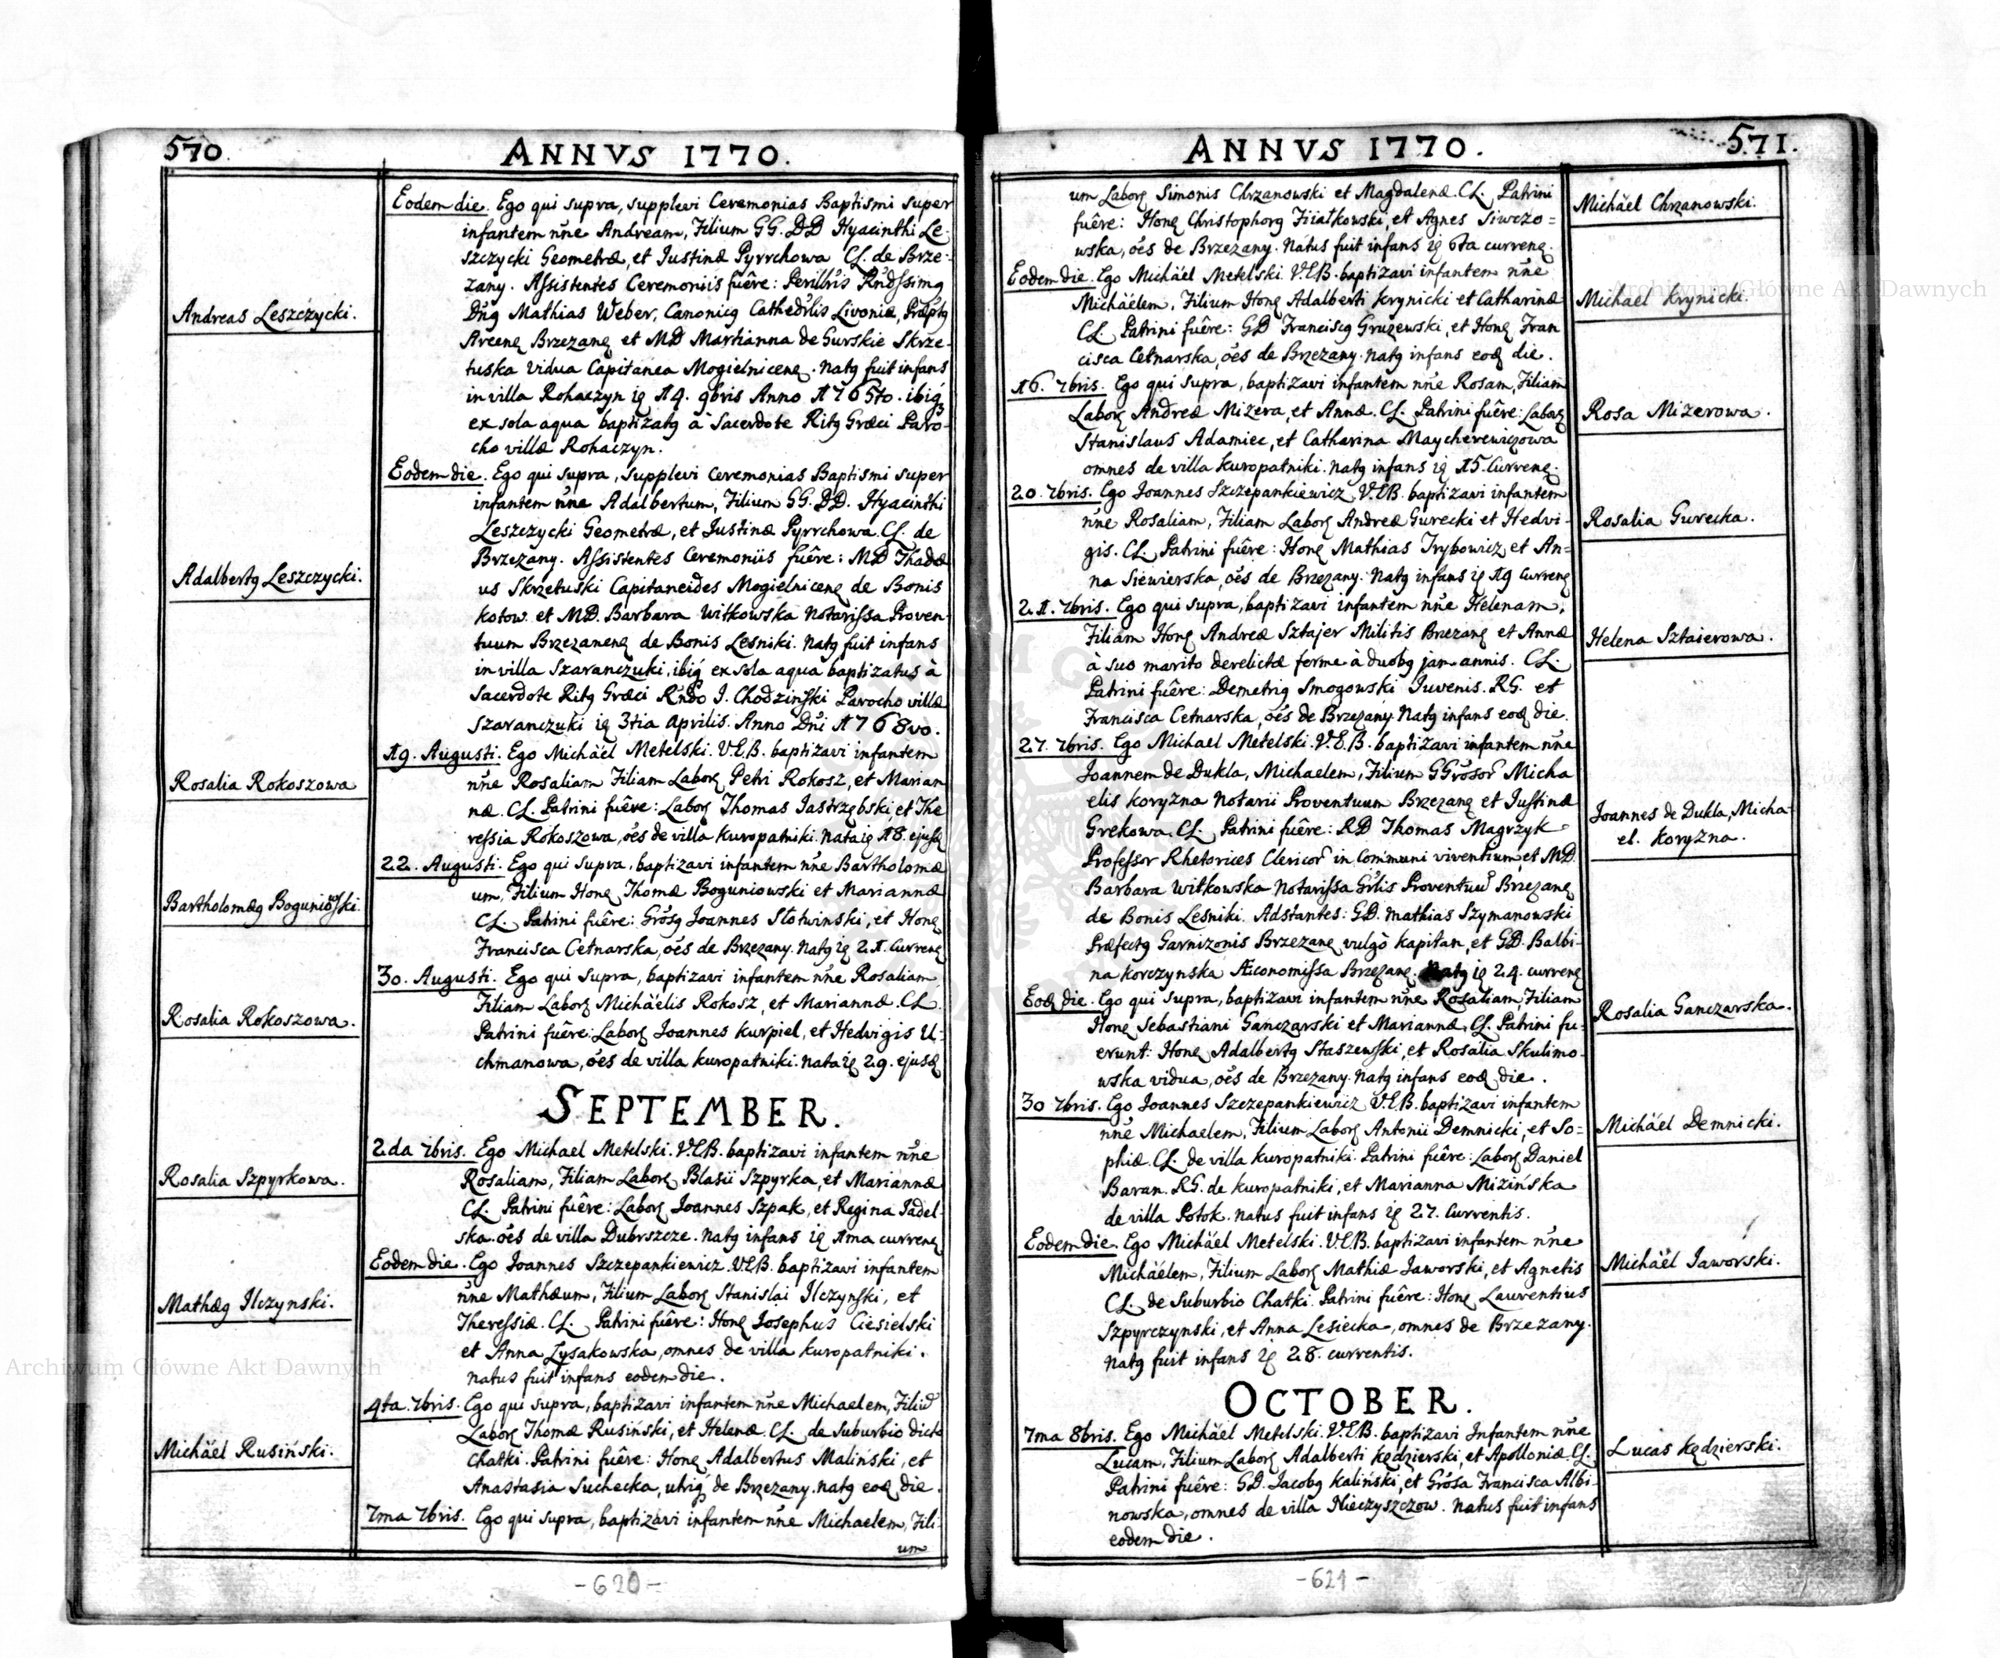 570.
ANNVS 1770.
Eodem die. Ego qui supra, supplevi Ceremonias Baptismi super
infantem nĩne Andream, Filium GG. DD Hyacinthi Le-
szczycki Geometræ, et Justinæ Pyrrchowa CL. de Brze-
zany. Assistentes Ceremoniis fuêre: Perillris Rndssimg
Dng Mathias Weber, Canonicg Cathedrlis Livoniæ, Præptg
Arceng Brzezang et MD Martianna de Gurskie Skrze-
tuska vidua Capitanea Mogielniceng. Natg fuit infans
Andreas Leszczycki.
in villa Rohaczyn ig 14. 9bris Anno 1765to. ibig
ex sola aqua baptizatg à Sacerdote Ritg Græci Paro-
cho villæ Rohaczyn.
Eodem die. Ego qui supra, supplevi Ceremonias Baptismi super
infantem nĩne Adalbertum, Filium GG. DD. Hyacinthi
Leszczycki Geometræ, et Justinæ Pyrrchowa. CL. de
Brzezany. Assistentes Ceremoniis fuêre: MD Thadæ
Adalbertg Leszczycki.
us Skrzetuski Capitaneides Mogielniceng de Bonis
kotow. et MD. Barbara Witkowska Notarissa Proven-
tuum Brzezaneng de Bonis Lesniki. Natg fuit infans
in villa Szaranczuki, ibig ex sola aqua baptizatus à
Sacerdote Ritg Græci Rndo J. Chodzinski Parocho villæ
Szaranczuki ig 3tia Aprilis. Anno Dni 1768vo.
19. Augusti. Ego Michäel Metelski. V.E.B. baptizavi infantem
Rosalia Rokoszowa
nĩne Rosaliam Filiam Laborg Petri Rokosz, et Marian
næ. CL. Patrini fuêre: Laborg Thomas Jastrzębski, et The
ressia Rokoszowa, oẽs de villa Kuropatniki. Nata ig 18. ejusg
22. Augusti. Ego qui supra, baptizavi infantem nĩne Bartholomæ
Bartholomæg Boguniowski.
um, Filium Hong Thomæ Boguniowski et Mariannæ
CL. Patrini fuêre: Grösg Joannes Słotwinski, et Hong
Francisca Cetnarska, oẽs de Brzezany. Natg ig 21. Curreng
30. Augusti. Ego qui supra, baptizavi infantem nĩne Rosaliam,
Rosalia Rokoszowa.
Filiam Laborg Michäelis Rokosz, et Mariannæ. CL.
Patrini fuêre: Laborg Joannes Kurpiel, et Hedvigis U-
chmanowa, oẽs de villa Kuropatniki. Nata ig 29. ejusg
SEPTEMBER.
2da 7bris. Ego Michael Metelski. V.E.B. baptizavi infantem nĩne
Rosalia Szpyrkowa.
Rosaliam, Filiam Laborg Blasii Szpyrka, et Mariannæ
CL. Patrini fuêre: Laborg Joannes Szpak, et Regina Padel-
ska. oẽs de villa Dubrszcze. Natg infans ig 1ma curreng
Eodem die. Ego Joannes Szczepankiewicz. V.E.B. baptizavi infantem
Mathæg Ilczynski.
nĩne Mathæum, Filium Laborg Stanislai Ilczynski, et
Theressiæ. CL. Patrini fuêre: Hong Josephus Ciesielski
et Anna Łysakowska, omnes de villa Kuropatniki.
natus fuit infans eodem die.
4ta. 7bris. Ego qui supra, baptizavi infantem nĩne Michaelem, Filiũ
Michäel Rusiński.
Laborg Thomæ Rusiński, et Helenæ. CL. de Suburbio dicto
Chatki. Patrini fuêre: Hong Adalbertus Maliński, et
Anastasia Suchecka, utrig de Brzezany. natg eog die.
7ma 7bris. Ego qui supra, baptizavi infantem nĩne Michaelem, Fili-
um
-620-
ANNVS 1770.
571.
um Laborg Simonis Chrzanowski et Magdalenæ. CL. Patrini
Michäel Chrzanowski.
fuêre: Hong Christophorg Fiiałkowski, et Agnes Siwczo-
wska, oẽs de Brzezany. Natus fuit infans ig 6ta curreng.
Eodem die. Ego Michäel Metelski V.E.B. baptizavi infantem nĩne
Michael Krynicki.
Michäelem, Filium Hong Adalberti Krynicki et Catharinæ
CL. Patrini fuêre: GD Franciscg Gruzewski, et Hong Fran
cisca Cetnarska, oẽs de Brzezany. Natg infans eog die.
16. 7bris. Ego qui supra, baptizavi infantem nĩne Rosam, Filiam
Rosa Mizerowa.
Laborg Andreæ Mizera, et Annæ. CL. Patrini fuêre: Laborg
Stanislaus Adamiec, et Catharina Maycherewiczowa
omnes de villa Kuropatniki. Natg infans ig 15. Curreng.
20. 7bris. Ego Joannes Szczepankiewicz V.E.B. baptizavi infantem
Rosalia Gurecka.
nĩne Rosaliam, Filiam Laborg Andreæ Gurecki et Hedvi-
gis. CL. Patrini fuêre: Hong Mathias Trybowicz et An-
na Siewierska, oẽs de Brzezany. Natg infans ig 19 curreng
21. 7bris. Ego qui supra, baptizavi infantem nĩne Helenam,
Helena Sztaierowa.
Filiam Hong Andreæ Sztajer Militis Brzezang et Annæ
à suo marito derelictæ ferme à duobg jam annis. CL.
Patrini fuêre: Demetrig Smogowski Juvenis. RG. et
Francisca Cetnarska, oẽs de Brzezany. Natg infans eog die.
27. 7bris. Ego Michael Metelski. V.E.B. baptizavi infantem nĩne
Joannem de Dukla, Michaelem, Filium GGrösor Micha
Joannes de Dukla, Micha-
el. Koryzna.
elis Koryzna Notarii Proventuum Brzezang et Justinæ
Grekowa. CL. Patrini fuêre: RD Thomas Magrzyk
Professor Rhetorices Clericor in Communi viventium, et MD.
Barbara Witkowska Notarissa Grlis Proventuu Brzezang
de Bonis Lesniki. Adstantes: GD. Mathias Szymanowski
Præfectg Garnizonis Brzezang vulgò Kapitan, et GD. Balbi-
na Korczynska Æconomissa Brzezang. Natg ig 24. curreng
Eog die. Ego qui supra, baptizavi infantem nĩne Rosaliam, Filiam
Rosalia Ganczarska.
Hong Sebastiani Ganczarski et Mariannæ. CL. Patrini fu-
erunt: Hong Adalbertg Staszewski, et Rosalia Skulimo-
wska vidua, oẽs de Brzezany. Natg infans eog die.
30 7bris. Ego Joannes Szczepankiewicz V.E.B. baptizavi infantem
Michäel Demnicki.
nĩne Michaelem, Filium Laborg Antonii Demnicki, et So-
phiæ. CL. de villa Kuropatniki. Patrini fuêre: Laborg Daniel
Baran. RG. de Kuropatniki, et Marianna Mizińska
de villa Potok. Natus fuit infans ig 27. Currentis.
Eodem die. Ego Michäel Metelski. V.E.B. baptizavi infantem nĩne
Michäel Jaworski.
Michäelem, Filium Laborg Mathiæ Jaworski, et Agnetis
CL. de Suburbio Chatki. Patrini fuêre: Hong Laurentius
Szpyrczynski, et Anna Lesiecka, omnes de Brzezany.
Natg fuit infans ig 28. currentis.
OCTOBER.
7ma 8bris. Ego Michäel Metelski. V.E.B. baptizavi Infantem nĩne
Lucas Kędzierski.
Lucam, Filium Laborg Adalberti Kędzierski, et Apolloniæ. CL.
Patrini fuêre: GD. Jacobg Kaliński, et Grösa Francisca Albi-
nowska, omnes de villa Hieczyszczow. Natus fuit infans
eodem die.
-621-
Archiwum Główne Akt Dawnych
Archiwum Główne Akt Dawnych